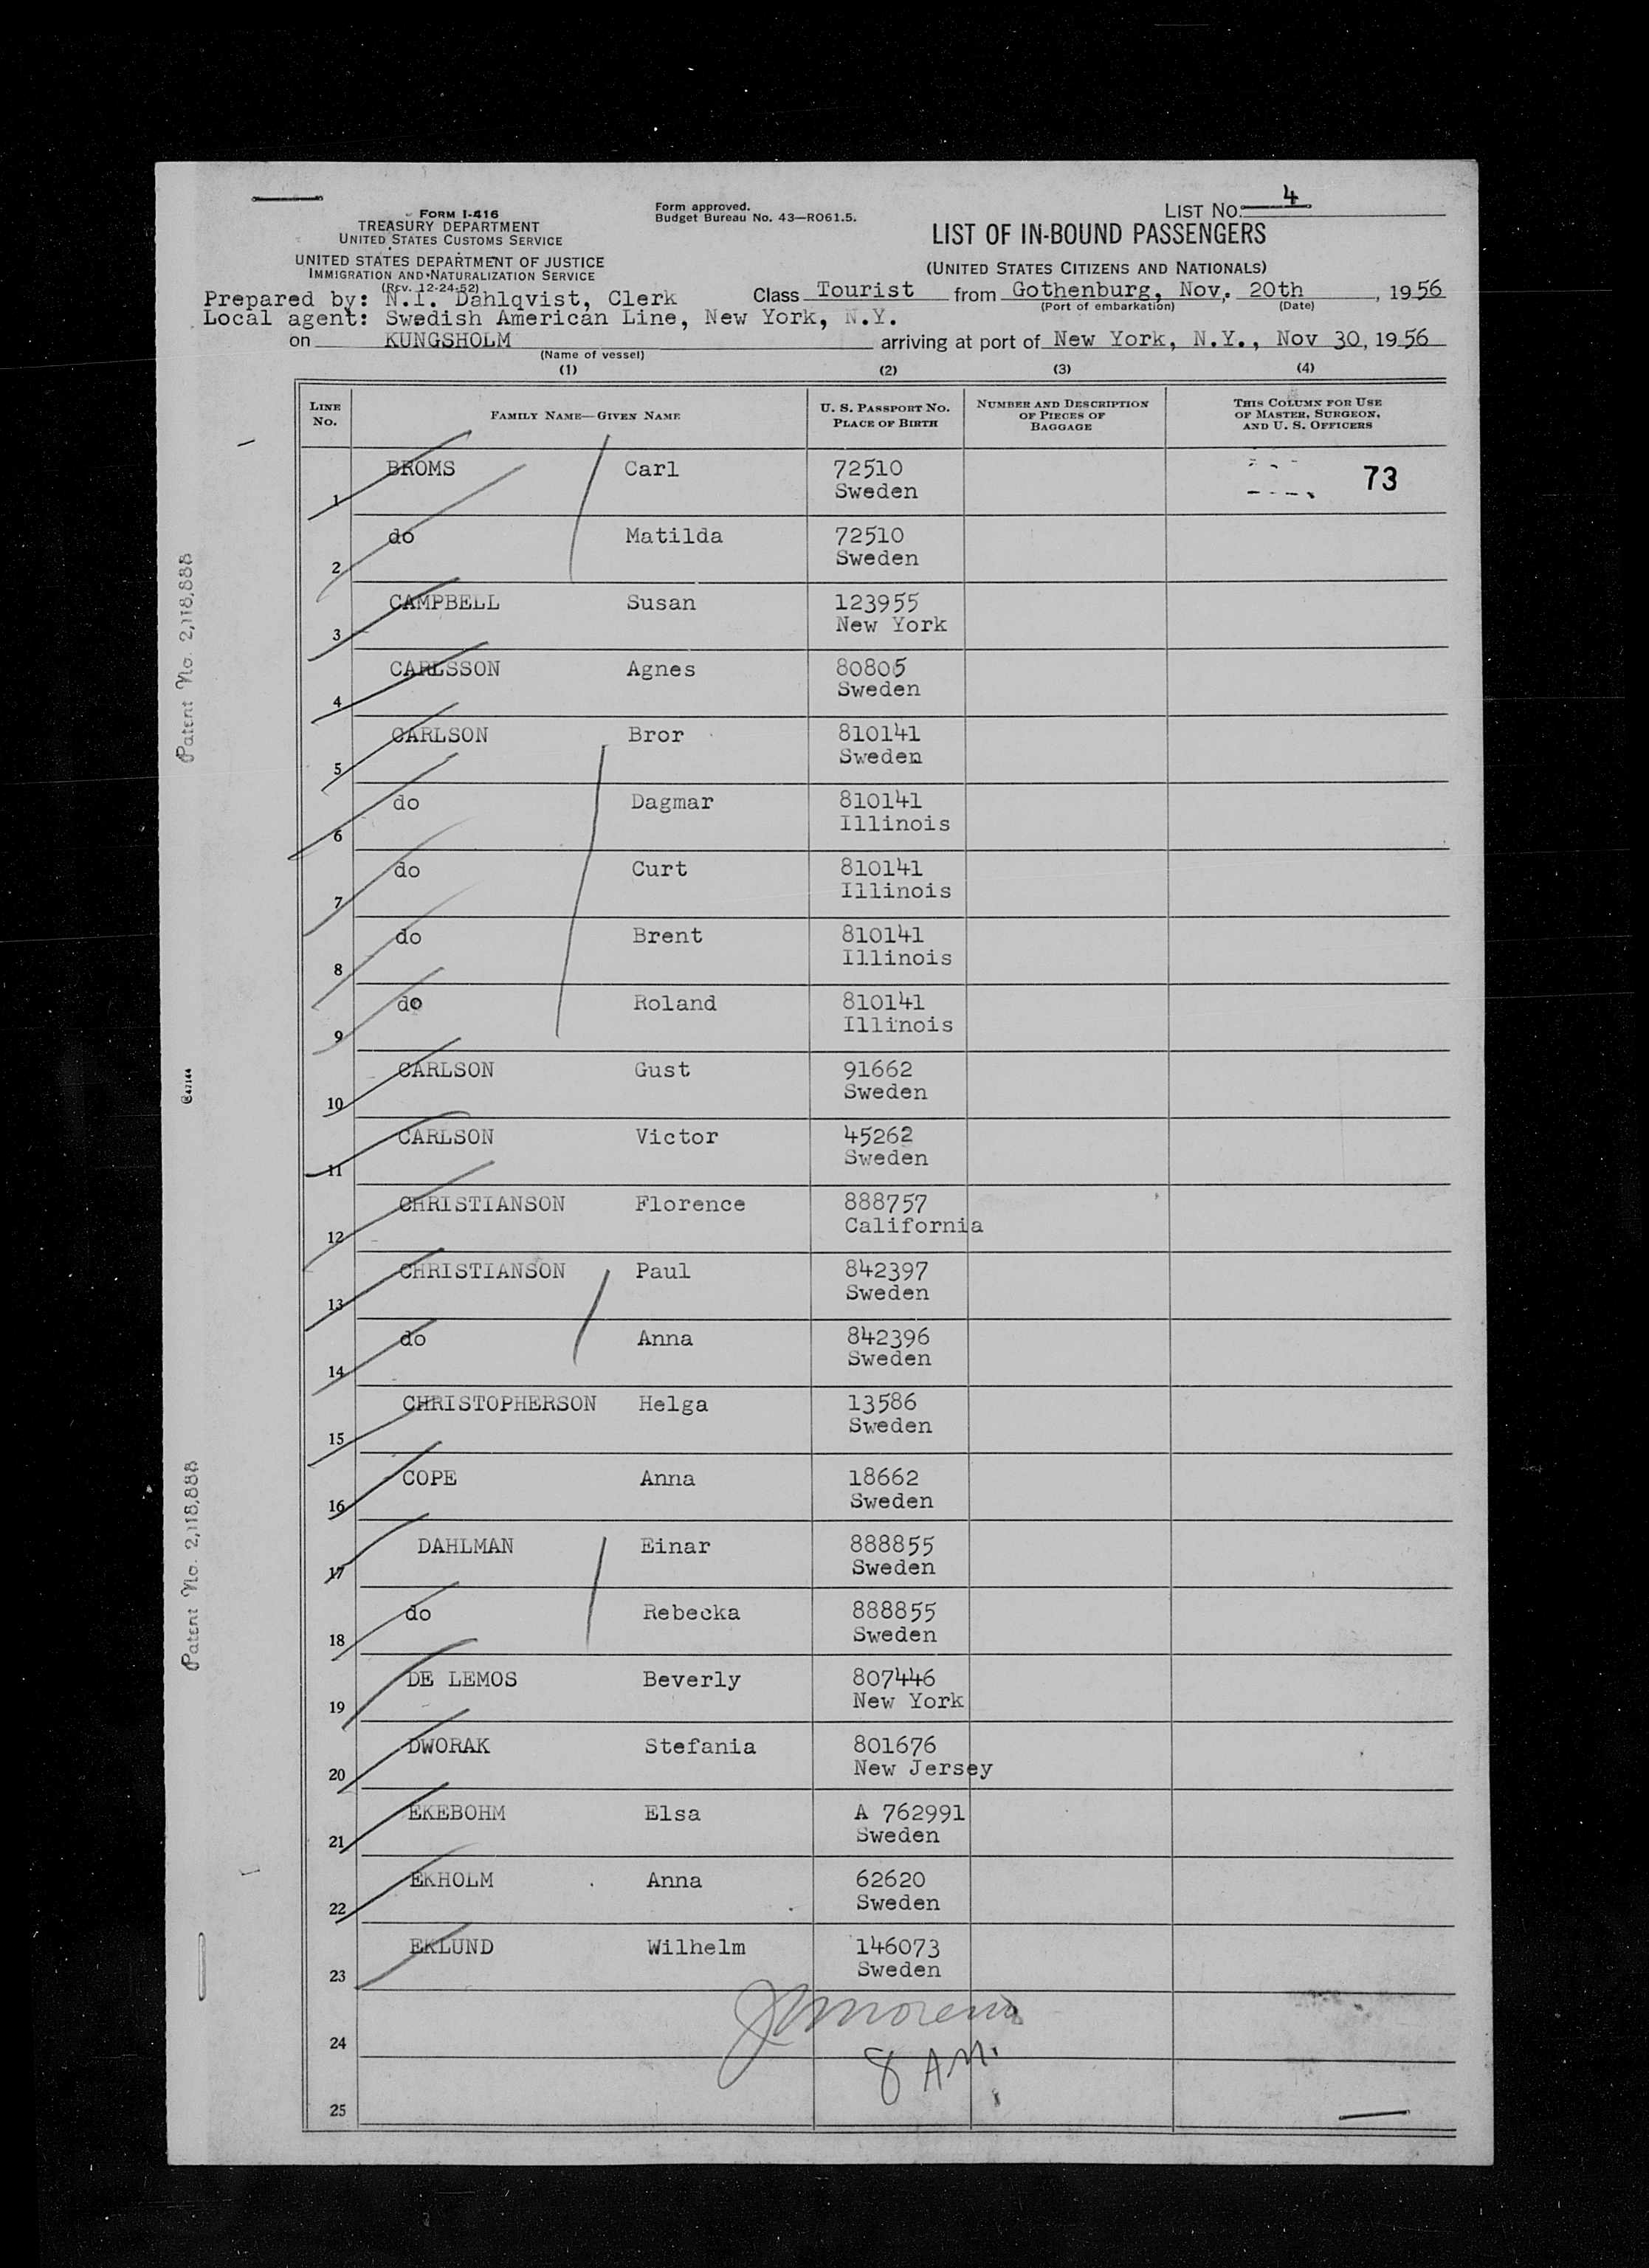 LIST No. 4
FORM I-416
TREASURY DEPARTMENT
UNITED STATES CUSTOMS SERVICE
UNITED STATES DEPARTMENT OF JUSTICE
IMMIGRATION AND NATURALIZATION SERVICE
(Rev. 12-24-52)
Form approved.
Budget Bureau No. 43—RO61.5.
LIST OF IN-BOUND PASSENGERS
(UNITED STATES CITIZENS AND NATIONALS)
Prepared by: N.I. Dahlqvist, Clerk
Class Tourist from Gothenburg, Nov. 20th, 1956
(Port of embarkation) (Date)
Local agent: Swedish American Line, New York, N.Y.
on KUNGSHOLM arriving at port of New York, N.Y., Nov 30, 1956
(Name of vessel)
(1) (2) (3) (4)
LINE No. FAMILY NAME—GIVEN NAME U. S. PASSPORT NO. PLACE OF BIRTH NUMBER AND DESCRIPTION OF PIECES OF BAGGAGE THIS COLUMN FOR USE OF MASTER, SURGEON, AND U. S. OFFICERS
BROMS Carl 72510 73
1 Sweden
do Matilda 72510
2 Sweden
CAMPBELL Susan 123955
3 New York
CARLSSON Agnes 80805
4 Sweden
CARLSON Bror 810141
5 Sweden
do Dagmar 810141
6 Illinois
do Curt 810141
7 Illinois
do Brent 810141
8 Illinois
do Roland 810141
9 Illinois
CARLSON Gust 91662
10 Sweden
CARLSON Victor 45262
11 Sweden
CHRISTIANSON Florence 888757
12 California
CHRISTIANSON Paul 842397
13 Sweden
do Anna 842396
14 Sweden
CHRISTOPHERSON Helga 13586
15 Sweden
COPE Anna 18662
16 Sweden
DAHLMAN Einar 888855
17 Sweden
do Rebecka 888855
18 Sweden
DE LEMOS Beverly 807446
19 New York
DWORAK Stefania 801676
20 New Jersey
EKEBOHM Elsa A 762991
21 Sweden
EKHOLM Anna 62620
22 Sweden
EKLUND Wilhelm 146073
23 Sweden
24
8 AM.
25
Patent No. 2,118,888
Patent No. 2,118,888